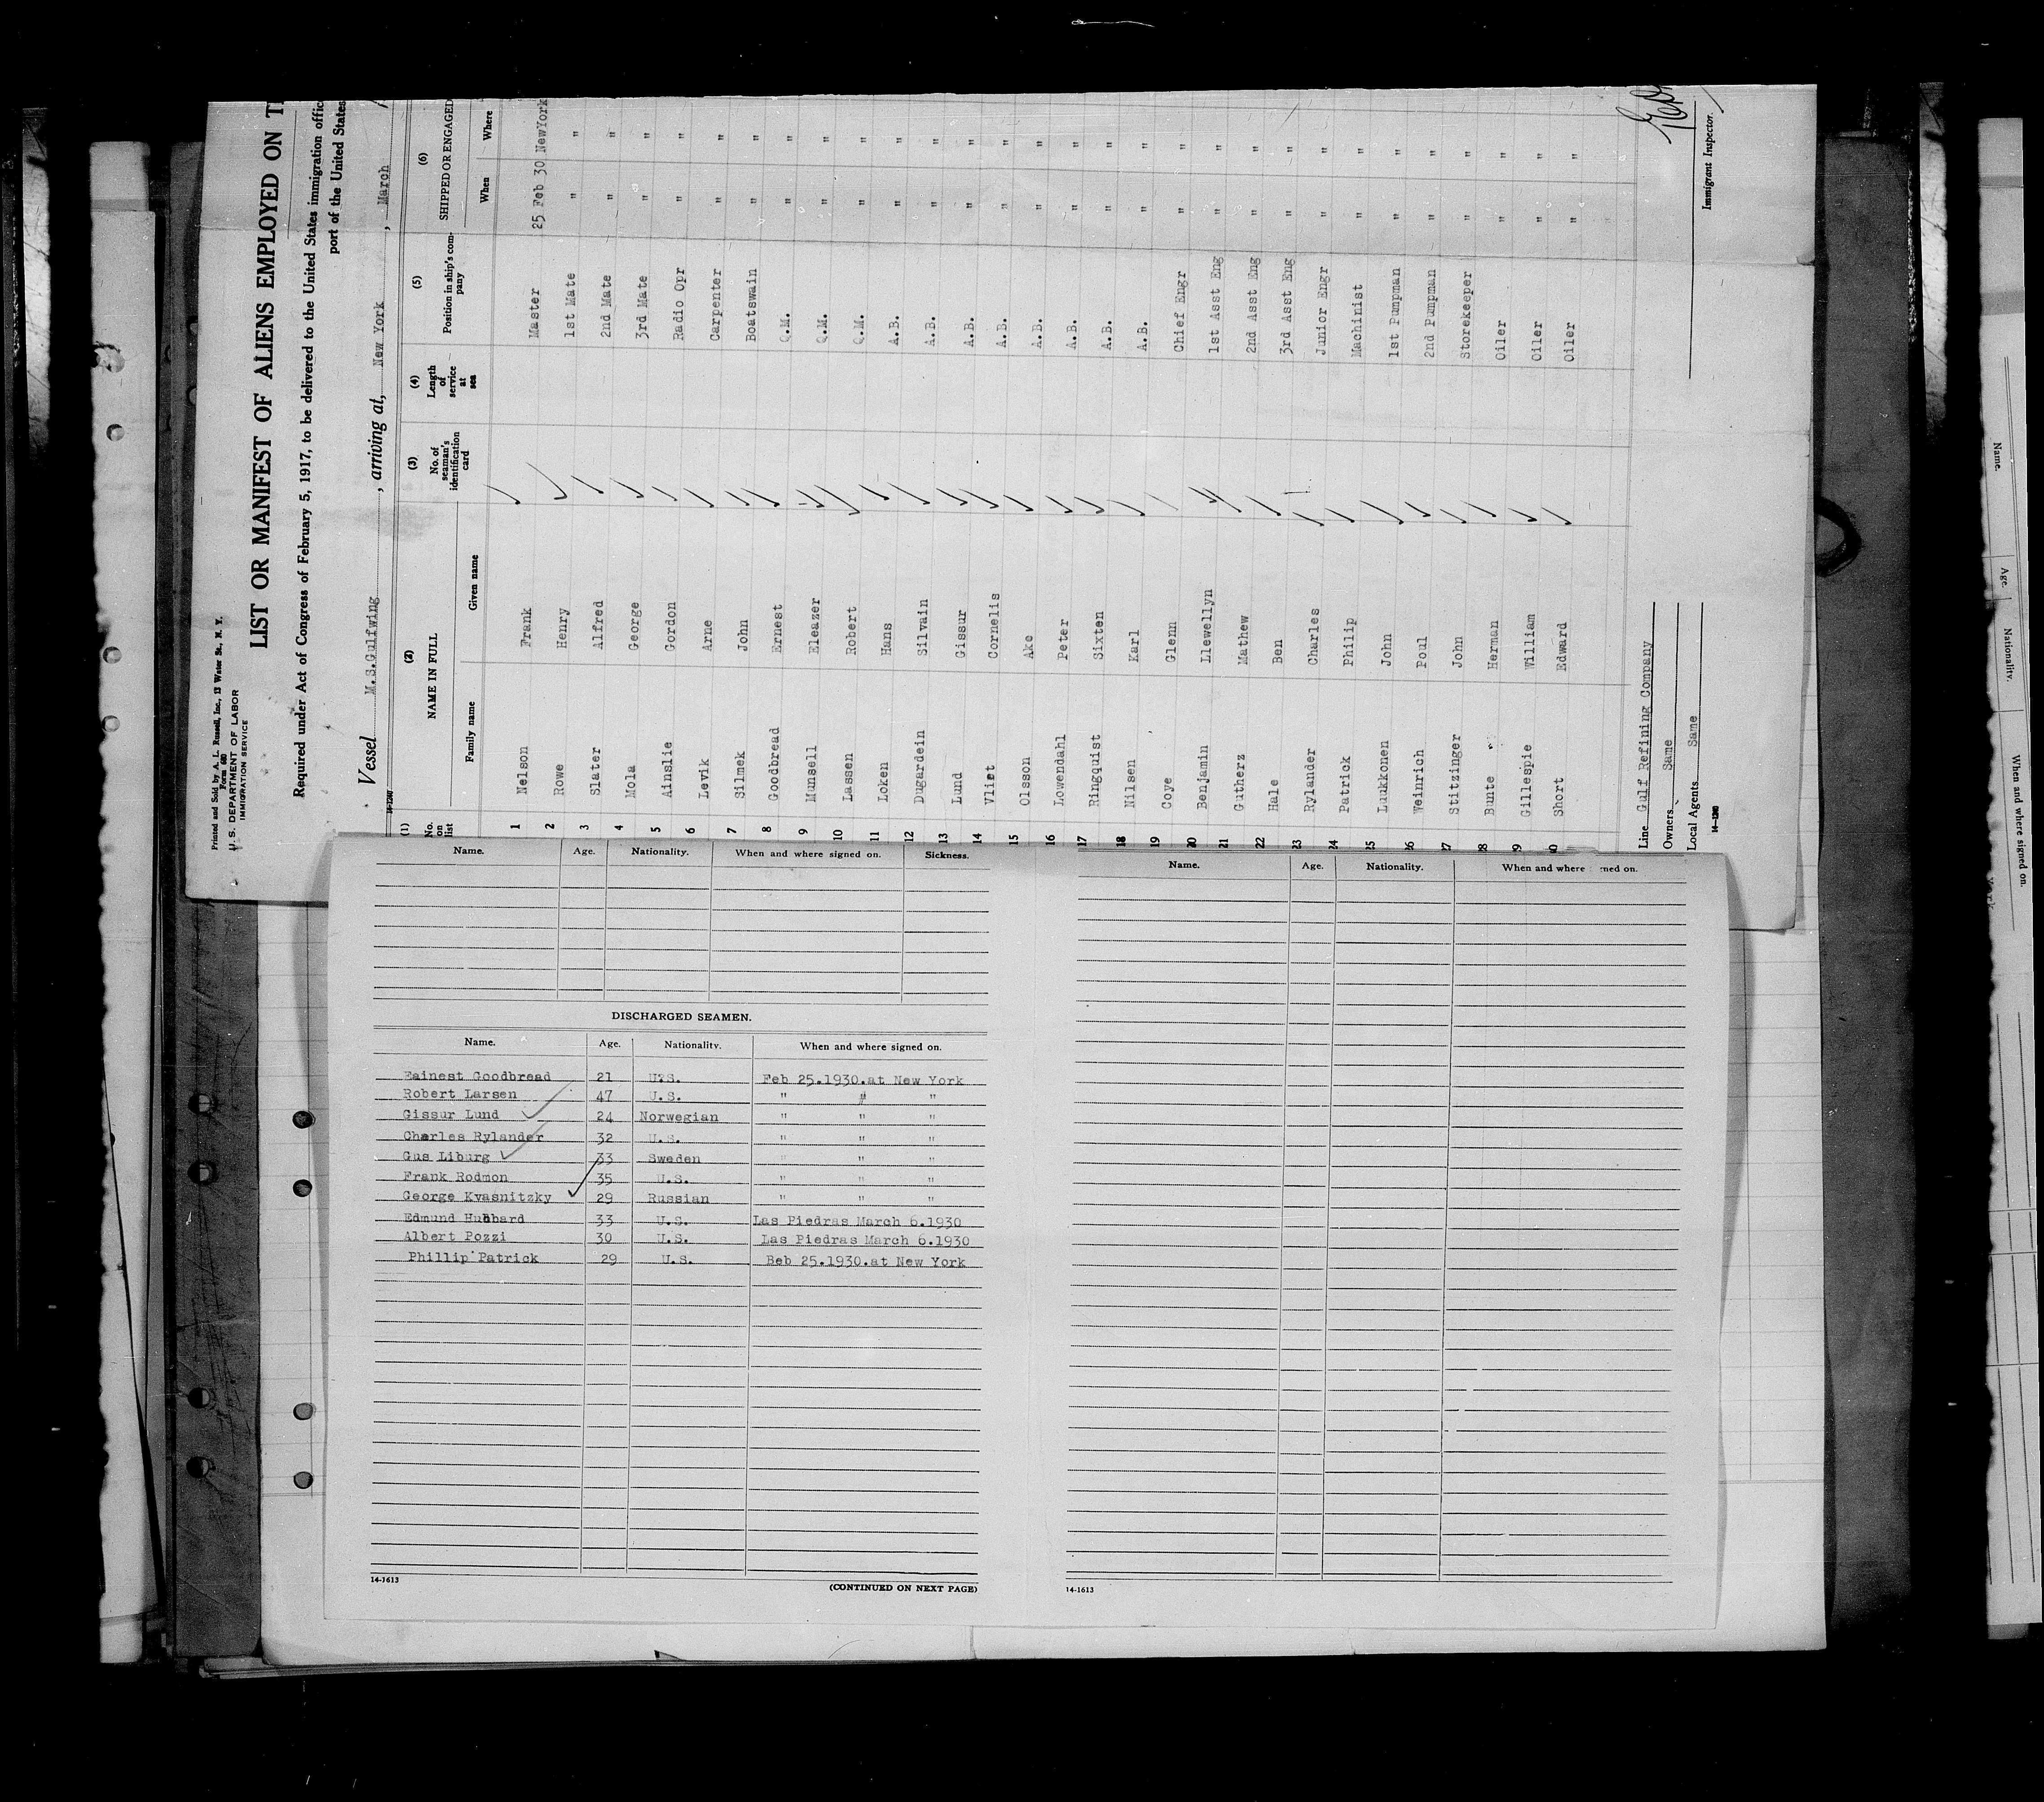 Printed and Sold by A. L. Russell, Inc., 13 Water St., N. Y.
Form 680
U. S. DEPARTMENT OF LABOR
IMMIGRATION SERVICE
LIST OR MANIFEST OF ALIENS EMPLOYED ON
Required under Act of Congress of February 5, 1917, to be delivered to the United States immigration
port of the United States
Vessel M.S.Gulfwing, arriving at, New York, March
14-1240
(1) No. on list (2) NAME IN FULL (3) No. of seaman's identification card (4) Length of service at sea (5) Position in ship's company (6) SHIPPED OR ENGAGED
Family name Given name When Where
1 Nelson Frank Master 25 Feb 30 NewYork
2 Rowe Henry 1st Mate " "
3 Slater Alfred 2nd Mate " "
4 Mola George 3rd Mate " "
5 Ainslie Gordon Radio Opr " "
6 Levik Arne Carpenter " "
7 Silmek John Boatswain " "
8 Goodbread Ernest Q.M. " "
9 Munsell Eleazer Q.M. " "
10 Lassen Robert Q.M. " "
11 Loken Hans A.B. " "
12 Dugardein Silvain A.B. " "
13 Lund Gissur A.B. " "
14 Vliet Cornelis A.B. " "
15 Olsson Ake A.B. " "
16 Lowendahl Peter A.B. " "
17 Ringquist Sixten A.B. " "
18 Nilsen Karl A.B. " "
19 Coye Glenn Chief Engr " "
20 Benjamin Llewellyn 1st Asst Eng " "
21 Gutherz Mathew 2nd Asst Eng " "
22 Hale Ben 3rd Asst Eng " "
23 Rylander Charles Junior Engr " "
24 Patrick Philip Machinist " "
25 Luukonen John 1st Pumpman " "
26 Weinrich Poul 2nd Pumpman " "
27 Stitzinger John Storekeeper " "
28 Bunte Herman Oiler " "
29 Gillespie William Oiler " "
30 Short Edward Oiler " "
Line Gulf Refining Company
Owners Same
Local Agents Same
14-1240
Immigrant Inspector.
Name. Age. Nationality. When and where signed on. Sickness.
DISCHARGED SEAMEN.
Name. Age. Nationality. When and where signed on.
Eainest Goodbread 21 U.S. Feb 25.1930.at New York
Robert Larsen 47 U.S. " " "
Gissur Lund 24 Norwegian " " "
Charles Rylander 32 U.S. " " "
Gus Liburg 33 Sweden " " "
Frank Rodmon 35 U.S. " " "
George Kvasnitzky 29 Russian " " "
Edmund Hubbard 33 U.S. Las Piedras March 6.1930
Albert Pozzi 30 U.S. Las Piedras March 6.1930
Phillip Patrick 29 U.S. Beb 25.1930.at New York
14-1613
(CONTINUED ON NEXT PAGE)
Name. Age. Nationality. When and where signed on.
14-1613
Name. Age. Nationality. When and where signed on.